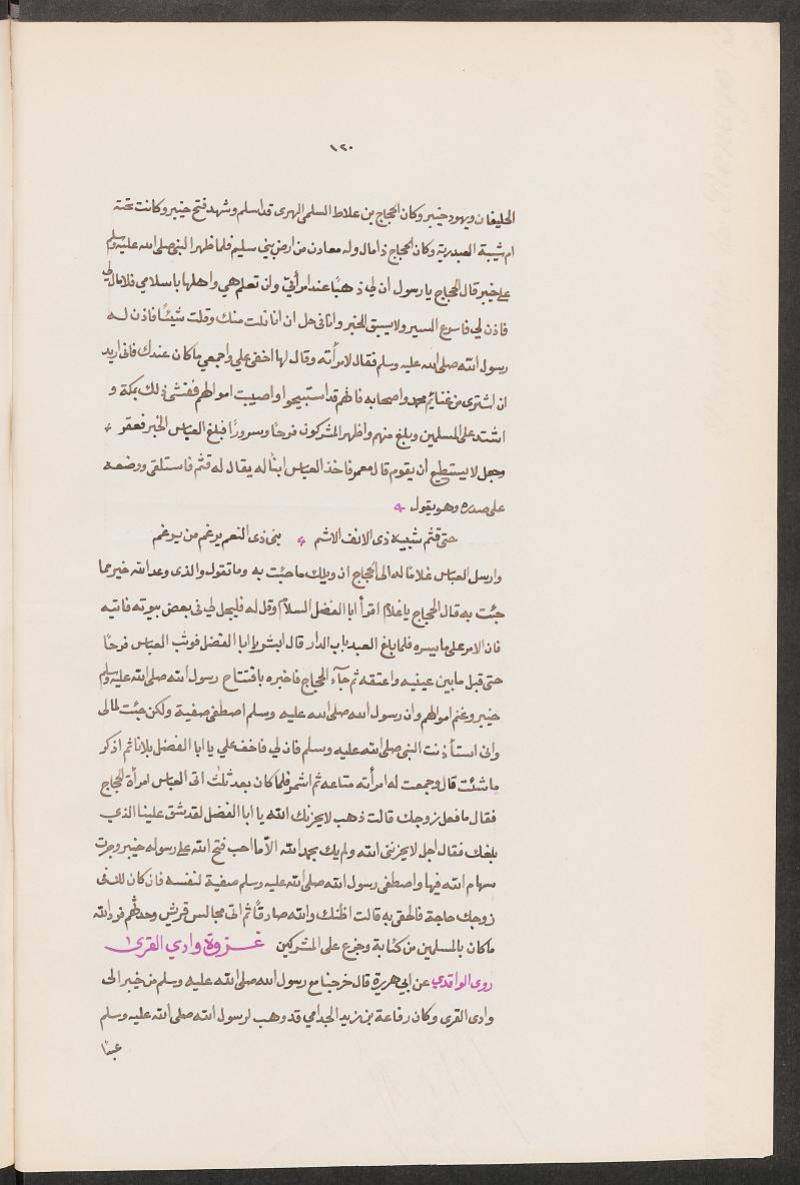 ١٢٠
الحليفان ويهود خيبر وكان الحجاج بن علاط السلمى البهرى قد اسلم وشهد فتح خيبر وكانت تحته
ام شيبة العبدرية وكان الحجاج ذا مال وله معادن من ارض بني سليم فلما ظهر النبى صلى الله عليه وسلم
على خيبر قال الحجاج يا رسول ان لي ذهبًا عند امرأتي وان تعلم هي واهلها باسلامي فلا مال لي
فاذن لي فاسرع السير ولا يسبق الخبر وانا فى حل ان انا نلت منك وقلت شيئًا فاذن له
رسول الله صلى الله عليه وسلم فقال لامرأته وقال لها اخفى علي واجمعي ما كان عندك فانى اريد
ان اشترى من غنايم محمد واصحابه فانهم قد استبيحوا واصيبت اموالهم ففشى ذلك بمكة و
اشتد على المسلمين وبلغ منهم واظهر المشركون فرحًا وسرورًا فبلغ العباس الخبر فعقر
وجعل لا يستطيع أن يقوم قال معمر فاخذ العباس ابنًا له يقال له قثم فاستلقى ووضعه
على صدره وهو يقول
حتى قثم شبيه ذى الانف الاشم بنى ذى النعم يرغم من يرغم
وارسل العباس غلامًا له الى الحجاج ان ويلك ما جئت به وما تقول والذى وعد الله خير مما
جئت به قال الحجاج يا غلام اقرأ ابا الفضل السلام وقل له فليخل لي فى بعض بيوته فاتيه
فان الامر على ما يسره فلما بلغ العبد باب الدار قال ابشر يا ابا الفضل فوثب العباس فرحًا
حتى قبل ما بين عينيه واعتقه ثم جآء الحجاج فاخبره بافتتاح رسول الله صلى الله عليه وسلم
خيبر وغنم اموالهم وأن رسول الله صلى الله عليه وسلم اصطفى صفية ولكن جئت لمالى
وانى استأذنت النبى صلى الله عليه وسلم فاذن لي فاخف علي يا ابا الفضل ثلاثا ثم اذكر
ما شئت قال وجمعت له امرأته متاعه ثم اشمر فلما كان بعد ثلث اتى العباس امرأة الحجاج
فقال ما فعل زوجك قالت ذهب لا يحزنك الله يا ابا الفضل لقد شق علينا الذي
بلغك فقال اجل لا يحزننى الله ولم يك بحمد الله الا ما احب فتح الله على رسوله خيبر وجرت
سهام الله فيها واصطفى رسول الله صلى الله عليه وسلم صفية لنفسه فان كان لك فى
زوجك حاجة فالحقى به قالت اظنك والله صادقًا ثم اتى مجالس قريش وحدثهم فرد الله
ما كان بالمسلمين من كئابة وجزع على المشركين غزوة وادي القرى
روى الواقدي عن ابي هريرة قال خرجنا مع رسول الله صلى الله عليه وسلم من خيبر الى
وادى القرى وكان رفاعة بن زيد الجذامي قد وهب لرسول الله صلى الله عليه وسلم
عبدًا